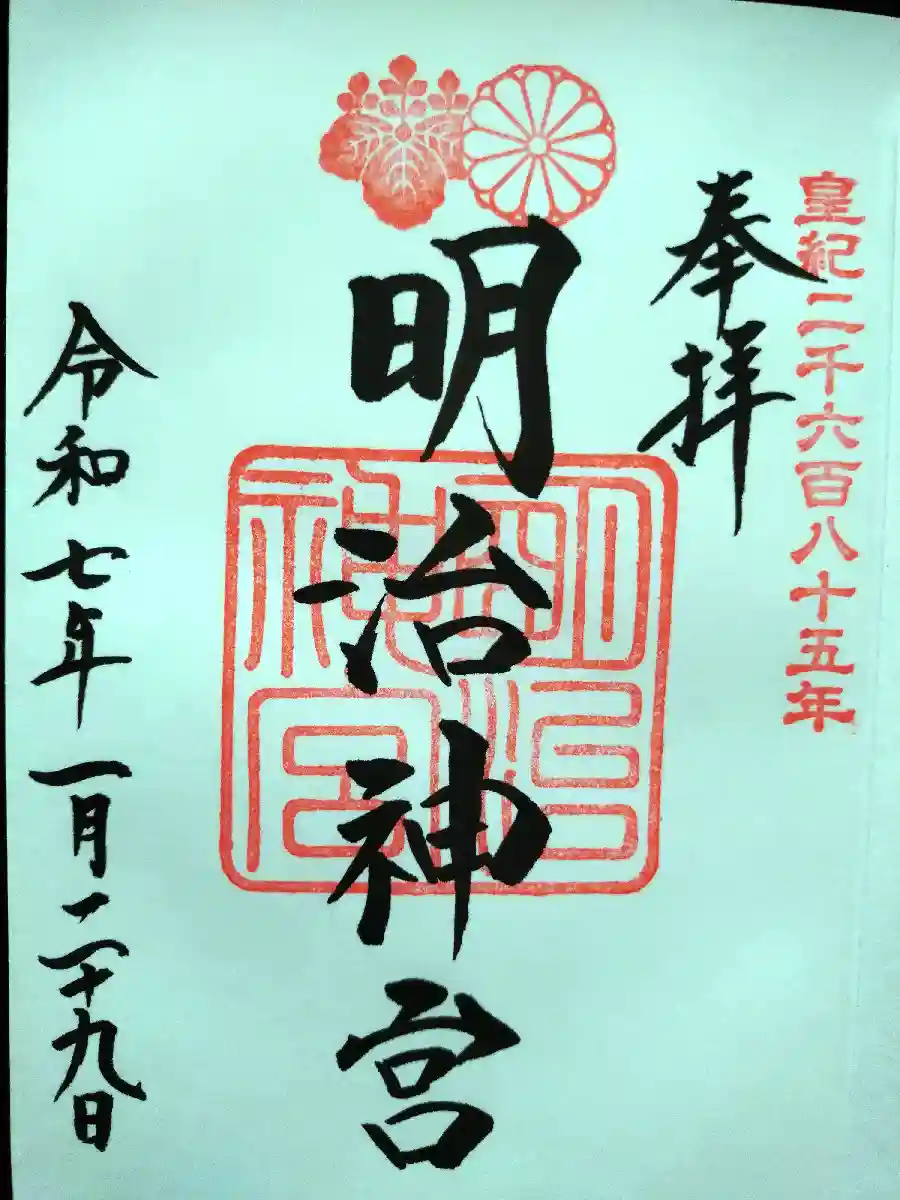 皇紀二千六百八十五年
奉拝
明治神宮
明治神宮
令和七年一月二十九日